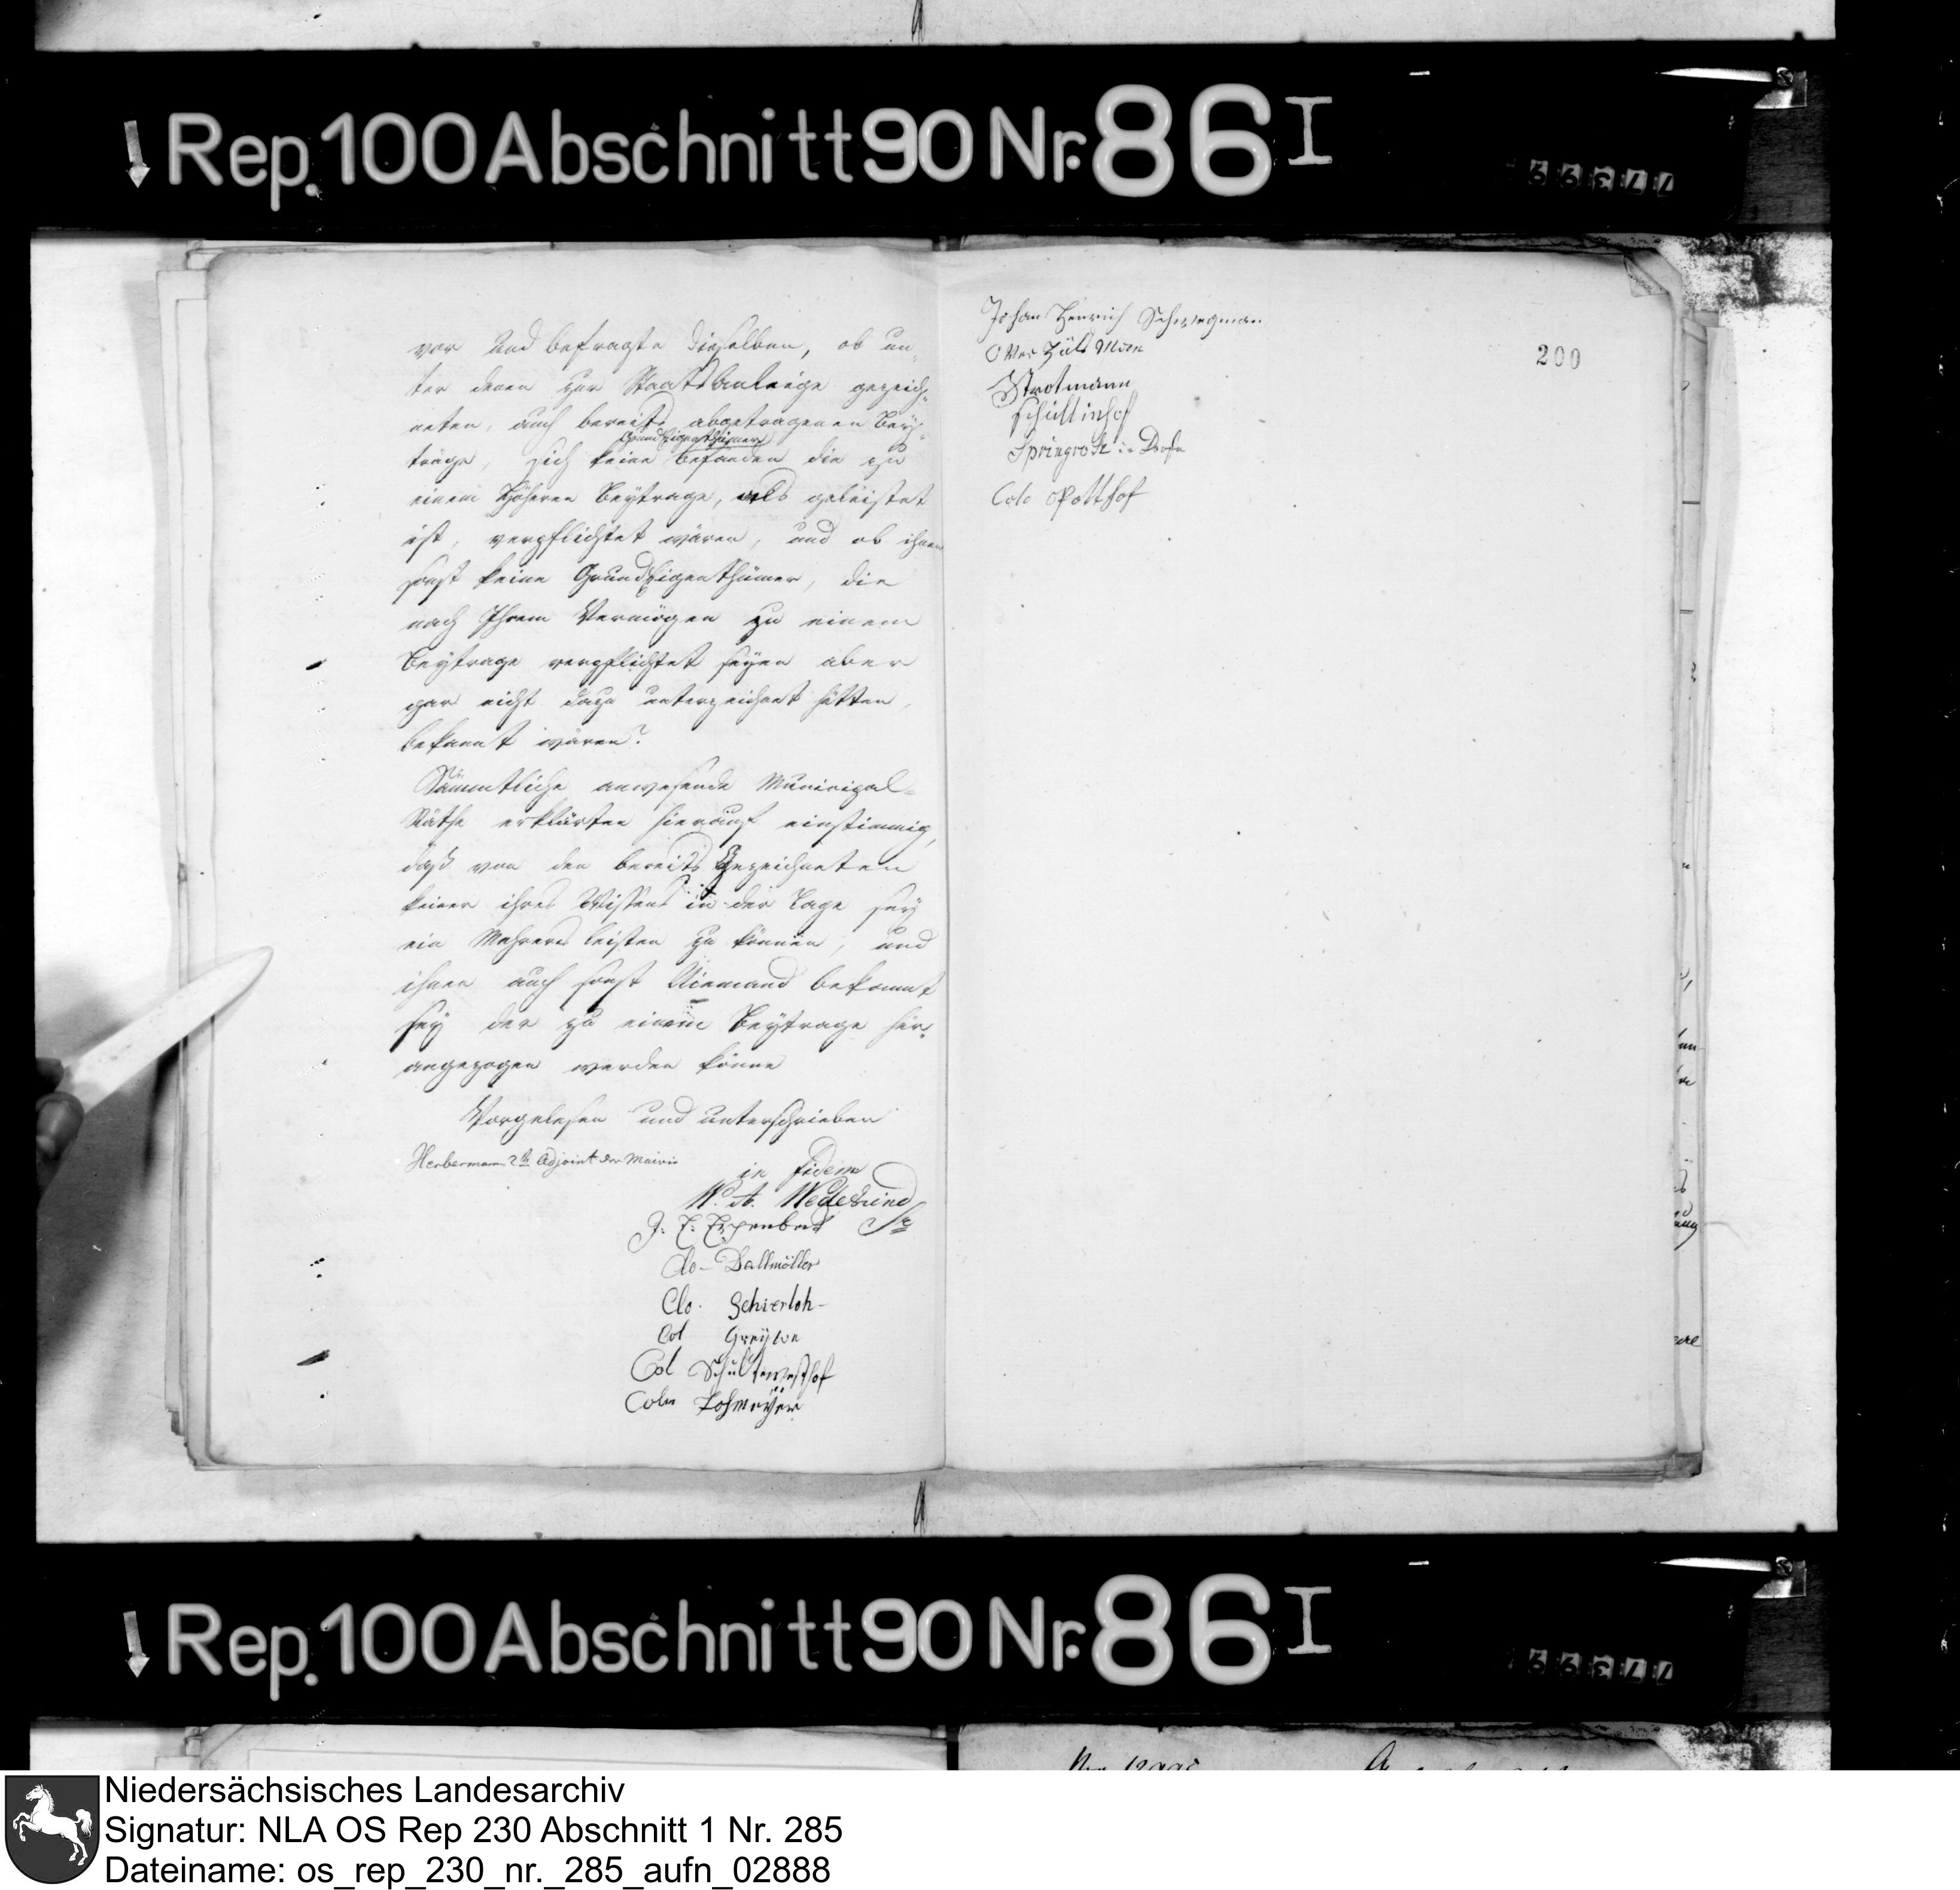 Rep. 100 Abschnitt 90 Nr. 86 I
77399
vor und befragte dieselben, ob un-
ter denen zur Staats Anleihe gezeich-
neten, auch bereits abgetragenen Bey-
GrundEigenthümer
träge, sich keine befänden die zu
einem höheren Beytrage, als geleistet
ist, verpflichtet wären, und ob ihnen
sonst keine GrundEigenthümer, die
nach Ihrem Vermögen zu einem
Beytrage verpflichtet seyen aber
gar nicht dazu unterzeichnet hätten,
bekannt wären?
Sämmtliche anwesende Municipal-
Räthe erklärten hierauf einstimmig,
daß von den bereits Gezeichneten
keiner ihres Wissens in der Lage sey
ein Mehreres leisten zu können, und
ihnen auch sonst Niemand bekannt
sey der zu einem Beytrage her-
angezogen werden könne
Vorgelesen und unterschrieben
Herbermann 2te Adjoint der Mairie
in fidem
W. A. Wedekind
Sr
Clo- Dallmöller
Clo. Schierloh-
Col Greywe
Col Schultewesthof
Colon Lohmeyer
200
Johan Henrich Schwegman
Strotmann
Schultinhof
Springrose in Dorfe
Colo Potthof
Rep. 100 Abschnitt 90 Nr. 86 I
77399
Niedersächsisches Landesarchiv
Signatur: NLA OS Rep 230 Abschnitt 1 Nr. 285
Dateiname: os_rep_230_nr._285_aufn_02888